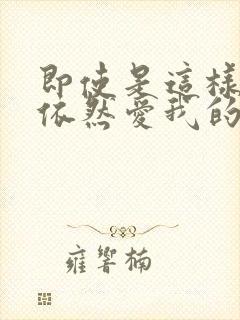 即使是這樣
依然愛我的
雍響楠